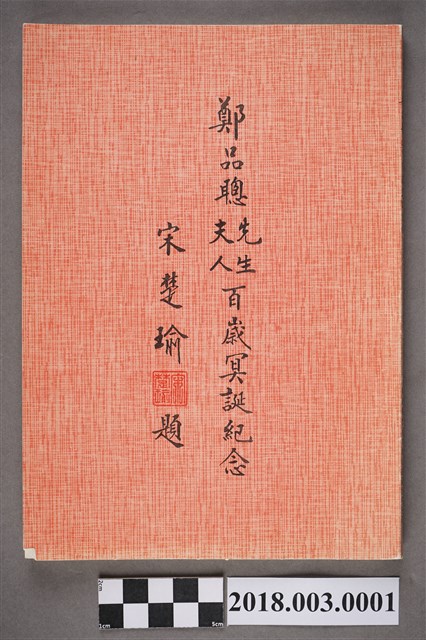 鄭品聰先生夫人百歲冥誕紀念
宋楚瑜題
宋楚瑜
2018.003.0001
1cm
5cm